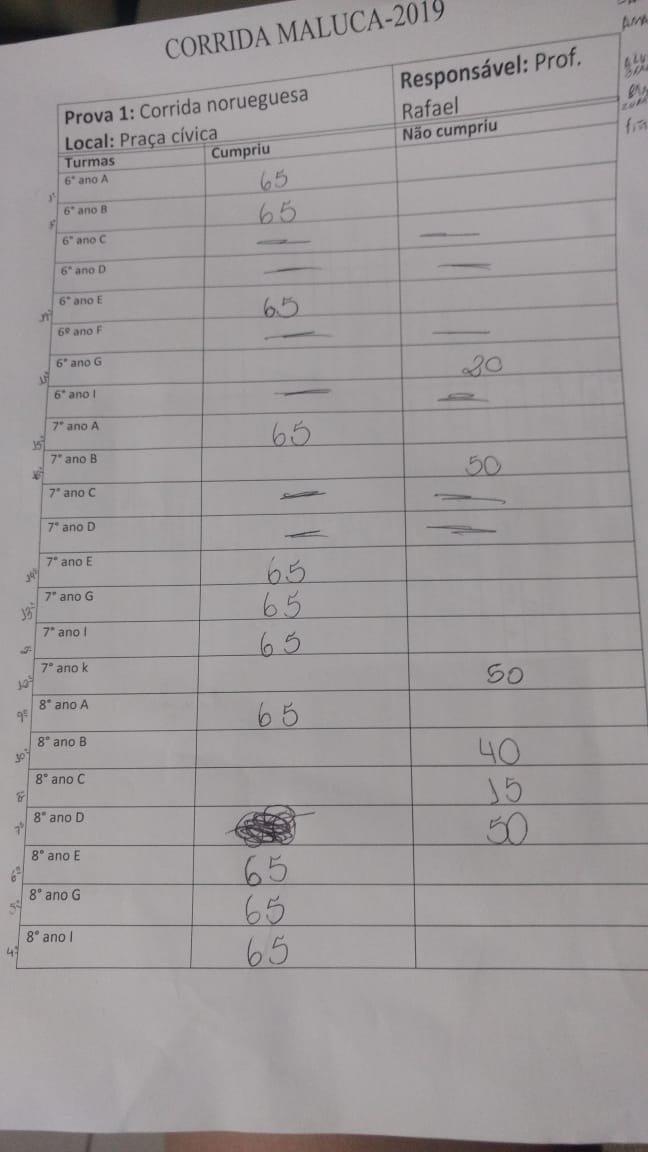 CORRIDA MALUCA-2019
Prova 1: Corrida norueguesa
Local: Praça cívica
Responsável: Prof.
Rafael
Turmas Cumpriu Não cumpriu
6° ano A 65
6° ano B 65
6° ano C — —
6° ano D — —
6° ano E 65
6º ano F — —
6° ano G 20
6° ano I — —
7° ano A 65
7° ano B 50
7° ano C — —
7° ano D — —
7° ano E 65
7° ano G 65
7° ano I 65
7° ano k 50
8° ano A 65
8° ano B 40
8° ano C 15
8° ano D 50
8° ano E 65
8° ano G 65
4º 8° ano I 65